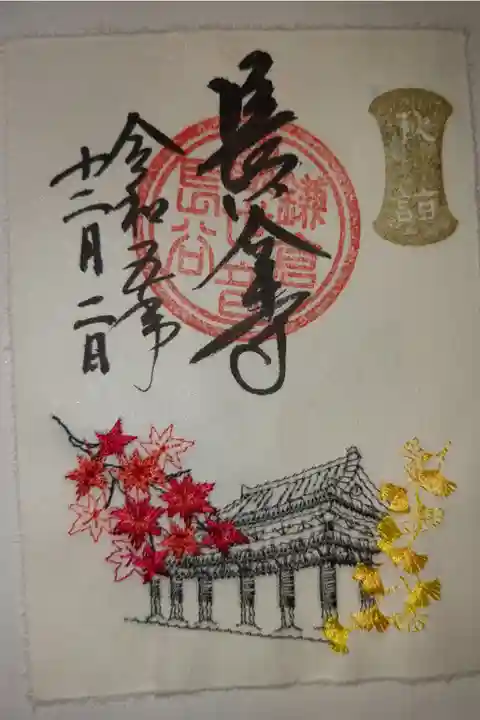 秋詣
長谷寺
鎌倉
長谷
令和五年
十二月二日